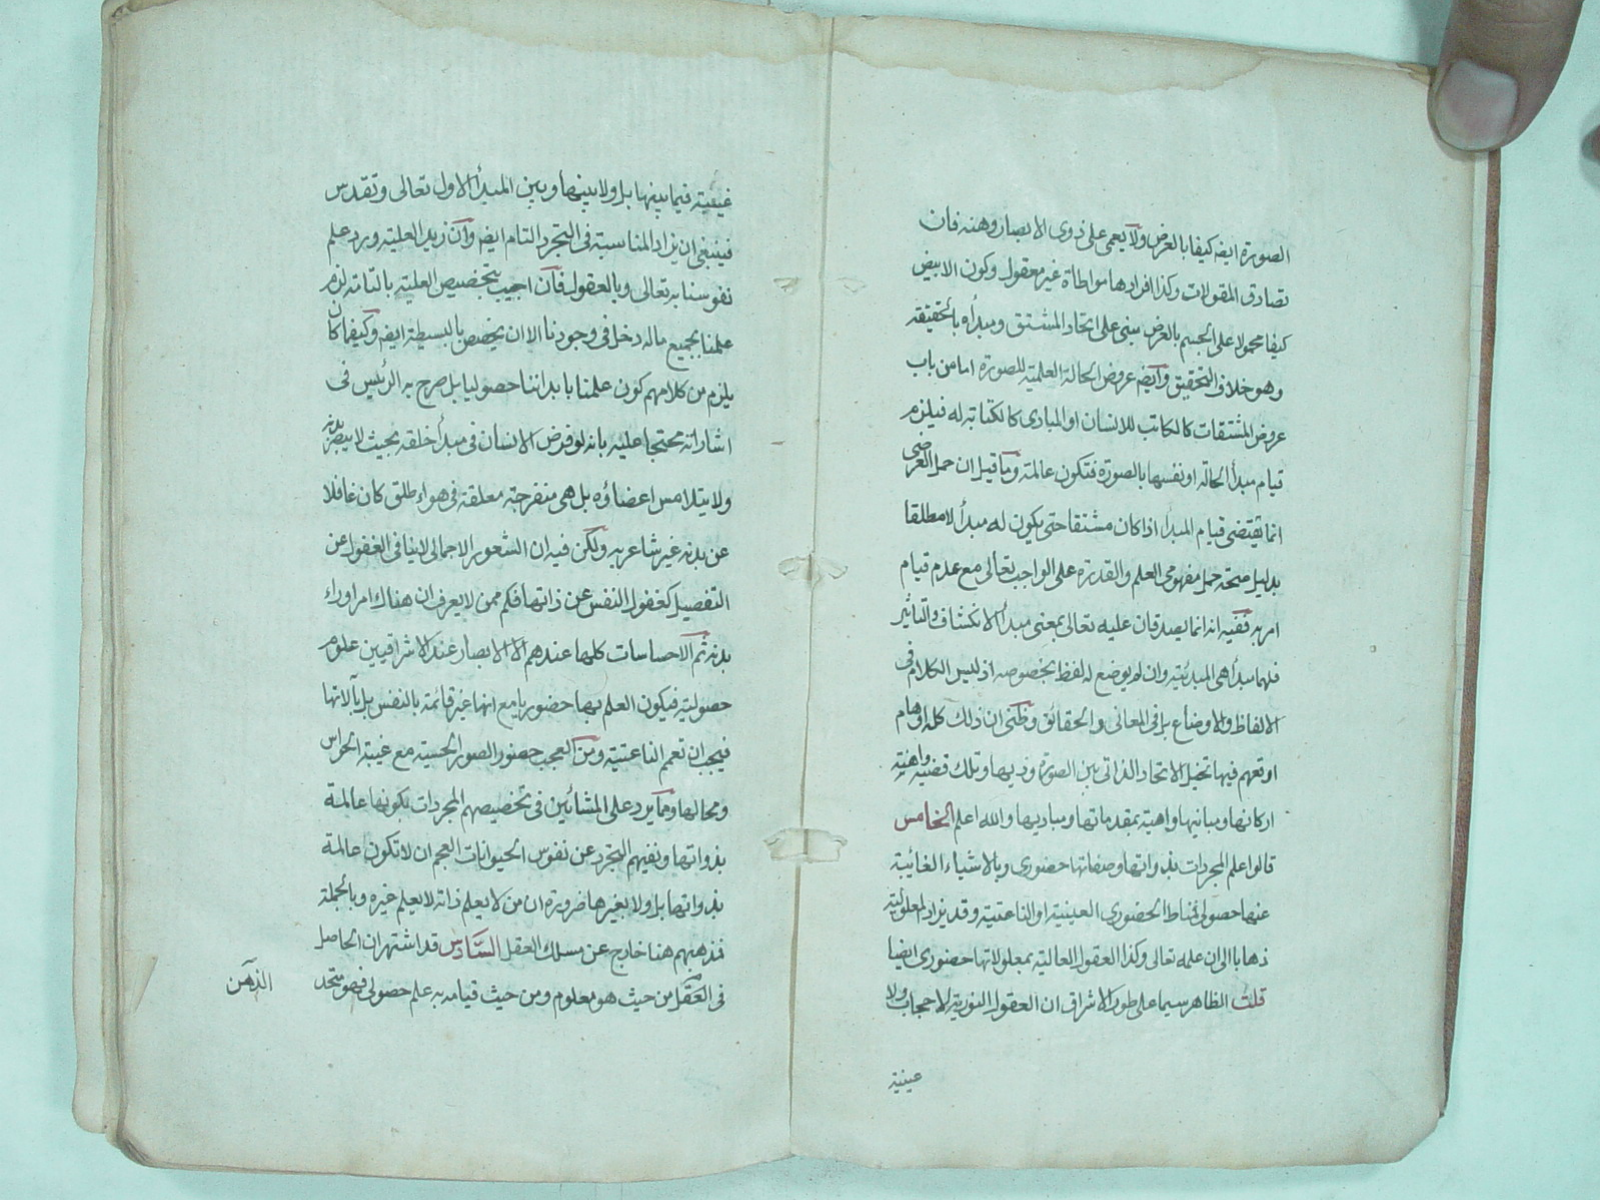 الصورة ايضه كيفا بالعرض ولا يعمى على ذوى الابصار وهنه فان
تصادق المقولات وكذا افرادها مواطاة غير معقول وكون الابيض
كيفا محمولا على الجسم بالعرض مبنى على اتحاد المشتق ومبدأه بالحقيقة
وهو خلاف التحقيق وايضه عروض الحالة العلمية للصورة اما من باب
عروض المشتقات كالكاتب للانسان او المبادى كالكتابة له فيلزم
قيام مبدأ الحالة او نفسها بالصورة فتكون عالمة وما قيل ان حمل العرضى
انما يقتضى قيام المبدأ اذا كان مشتقا حتى يكون له مبدأ لا مطلقا
بدليل صحة حمل مفهومى العلم والقدرة على الواجب تعالى مع عدم قيام
امر به ففيه انه انما يصدقان عليه تعالى بمعنى مبدأ الانكشاف والتأثير
فلهما مبدأ هى المبدئية وان لم يوضع له لفظ بخصوصه اذ ليس الكلام فى
الالفاظ والاوضاع بل فى المعانى والحقائق وظنى ان ذلك كله اوهام
اوقعهم فيها تخيل الاتحاد الذاتى بين الصورة وذيها وتلك قضية واهية
اركانها ومبانيها واهية بمقدماتها ومباديها والله اعلم الخامس
قالوا علم المجردات بذواتها وصفاتها حضورى وبالاشياء الغائبة
عنها حصولى فمناط الحضورى العينية او الناعتية وقد يزاد المعلولية
ذهابا الى ان علمه تعالى وكذا العقول العالية بمعلولاتها حضورى ايضا
قلت الظاهر سيما على طور الاشراق ان العقول النورية لا حجاب ولا
غيبية فيما بينها بل ولا بينها وبين المبدأ الاول تعالى وتقدس
فينبغى ان يزاد المناسبة فى التجرد التام ايضه وان زيد العلية ويرد علم
نفوسنا به تعالى وبالعقول فان اجيب بتخصيص العلية بالتامة لزم
علمنا بجميع ما له دخل فى وجودنا الا ان يخصص بالبسيطة ايضه وكيفما كان
يلزم من كلامهم كون علمنا بابداننا حصوليا بل صرح به الرئيس فى
اشاراته محتجا عليه بانه لو فرض الانسان فى مبدأ خلقه بحيث لا يبصر بدنه
ولا يتلامس اعضاؤه بل هى منفرجة معلقة فى هواء طلق كان غافلا
عن بدنه غير شاعر به ولكن فيه ان الشعور الاجمالى لا ينافى الغفول عن
التفصيل كغفول النفس عن ذاتها فكم ممن لا يعرف ان هناك امرا وراء
بدنه ثم الاحساسات كلها عندهم الا الابصار عند الاشراقيين علوم
حصولية فيكون العلم بها حضوريا مع انها غير قائمة بالنفس بل بآلاتها
فيجب ان تعمم الناعتية ومن العجب حضور الصور الحسية مع غيبة الحواس
ومحالها ومما يرد على المشائين فى تخصيصهم المجردات بكونها عالمة
بذواتها ونفيهم التجرد عن نفوس الحيوانات العجم ان لا تكون عالمة
بذواتها بل ولا بغيرها ضرورة ان من لا يعلم ذاته لا يعلم غيره وبالجملة
فمذهبهم هنا خارج عن مسلك العقل السادس قد اشتهر ان الحاصل
فى العقل من حيث هو معلوم ومن حيث قيامه به علم حصولى فهو متحد
الذهن